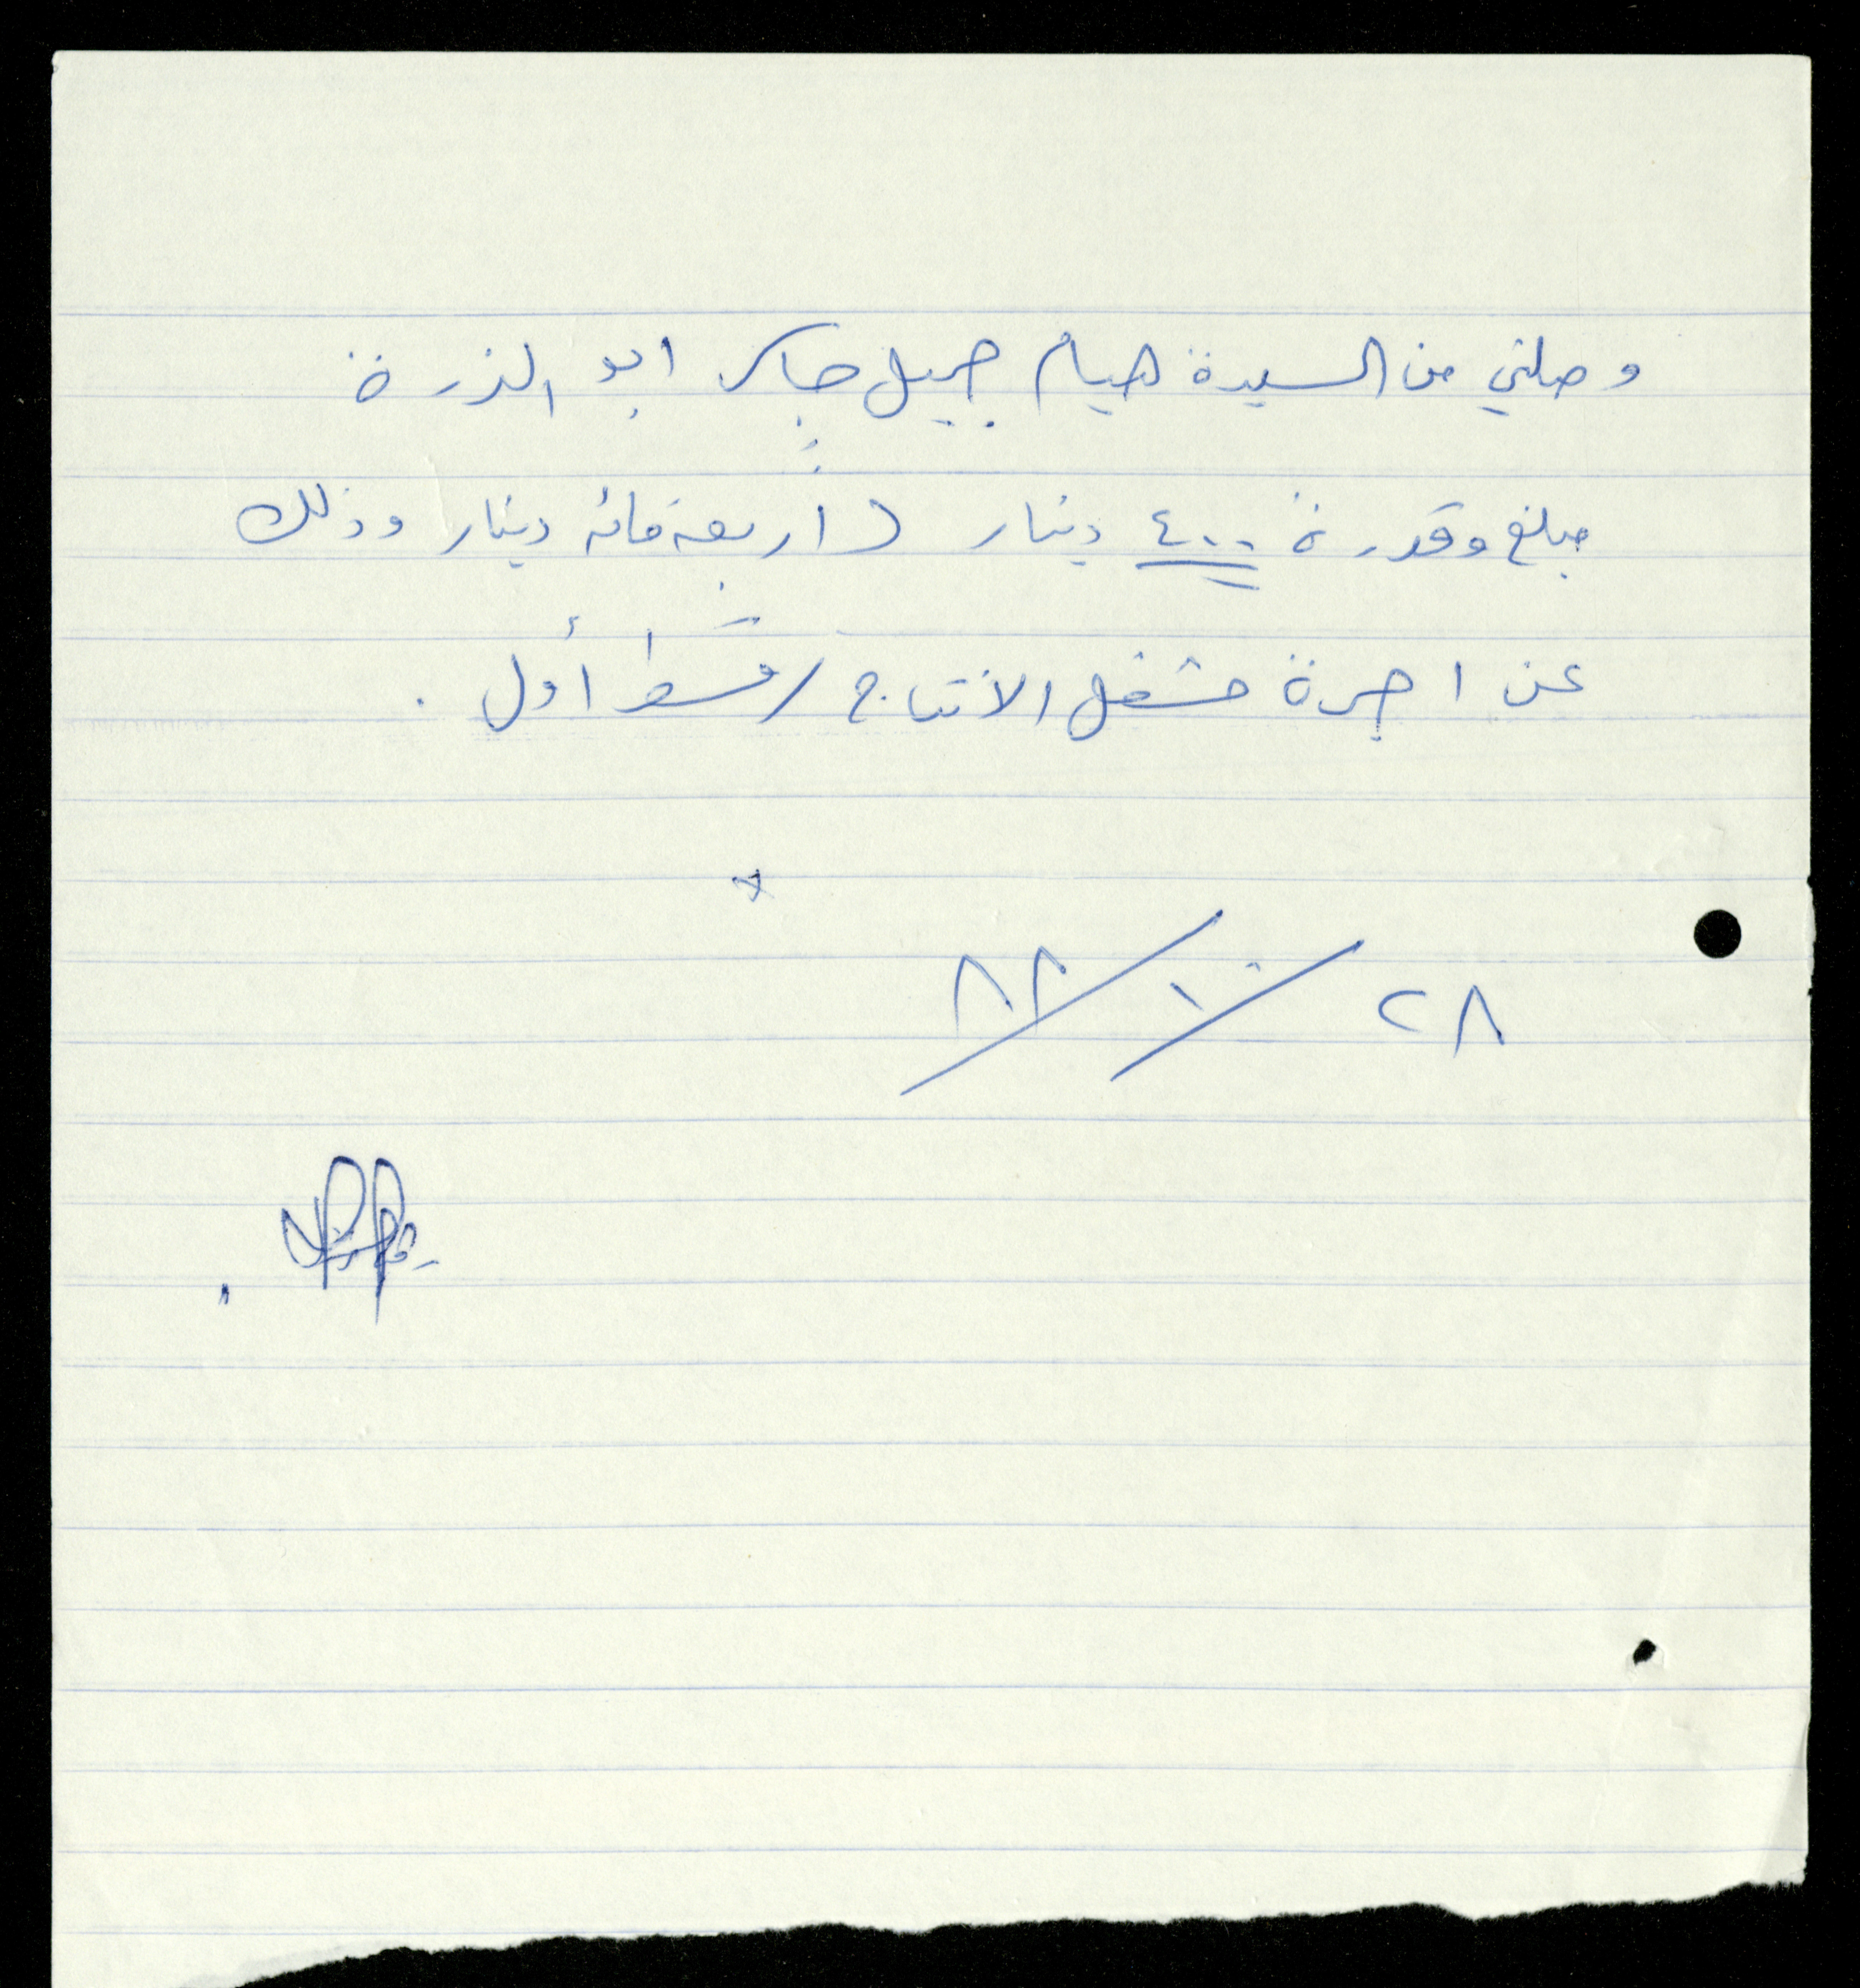 وصلني من السيدة هيام جميل جابر ابو الذرة
مبلغ وقدرة ٤٠٠ دينار ( اربعة مائة دينار وذلك
عن اجرة مشغل الانتاج / قسط أول .
٢٨ / ١٠ / ٨٨